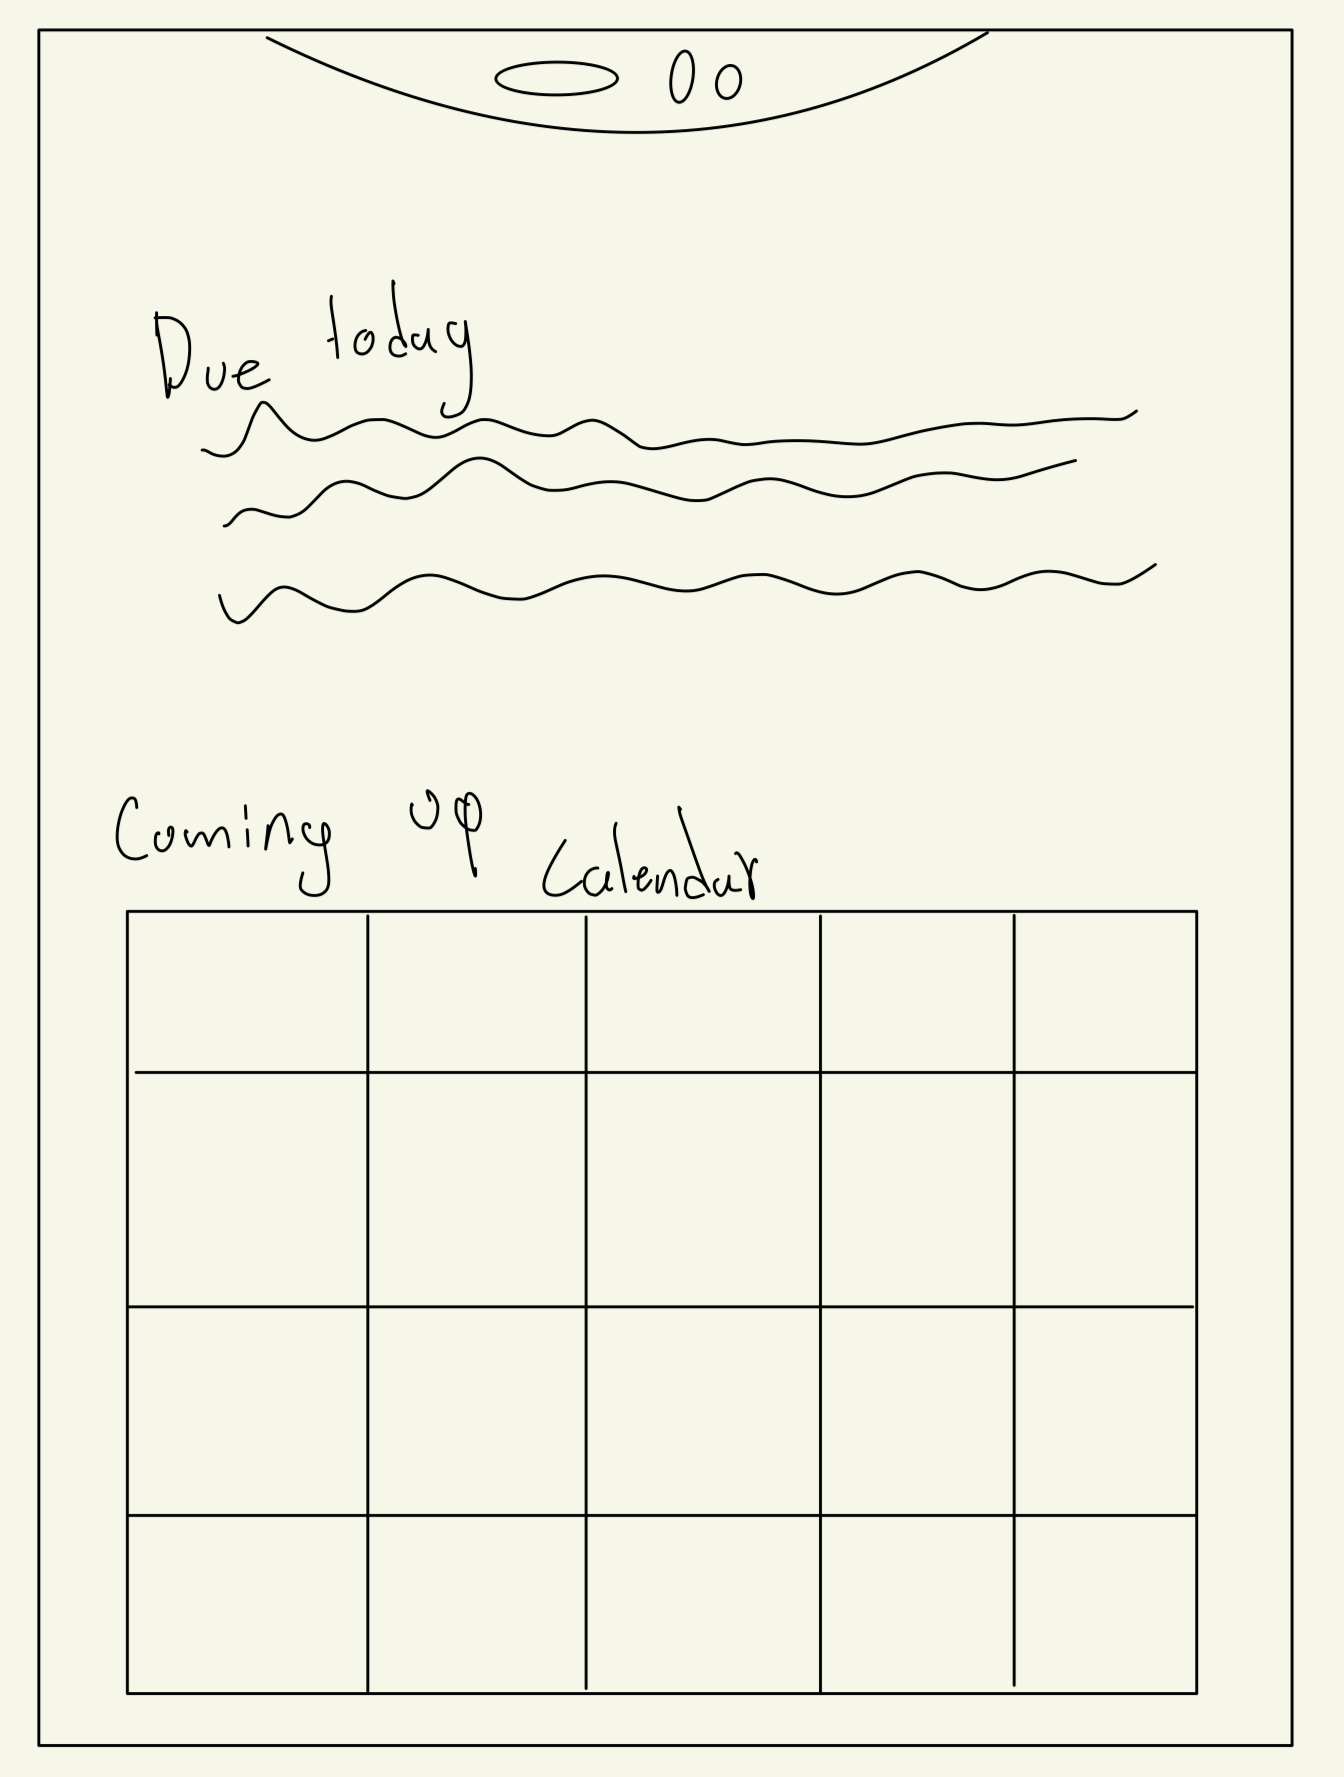 Due today
Coming up
Calendar